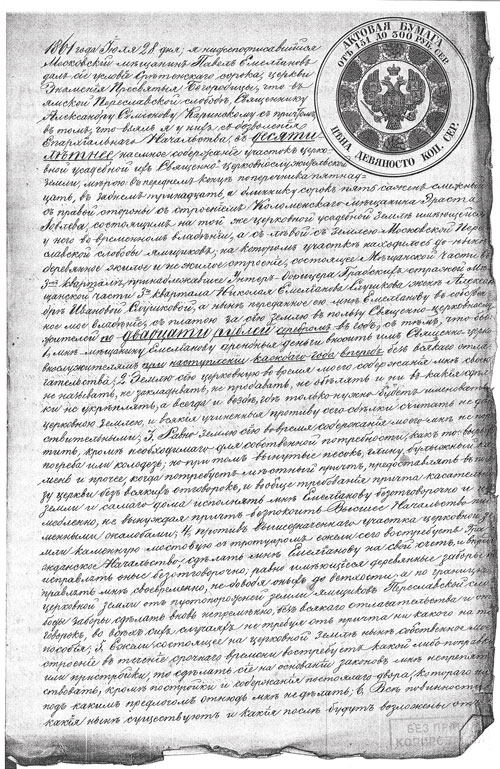 АКТОВАЯ БУМАГА
ОТЪ 151 ДО 300 РУБ. СЕР.
ЦѢНА ДЕВЯНОСТО КОП. СЕР.
1861 года Іюля 28 дня; я нижеподписавшійся
Московскій мѣщанинъ Павелъ Емельяновъ
далъ сіе условіе Срѣтенскаго сорока, церкви
Знаменія Пресвятыя Богородицы, что въ
ямской Переславской слободѣ, Священнику
Александру Семенову Каринскому съ причтомъ,
въ томъ, что взялъ я у нихъ съ дозволенія
Епархіальнаго Начальства, въ десяти
лѣтнее наемное содержаніе участокъ церко-
вной усадебной изъ Священно-церковнослужительской
земли, мѣрою въ переднемъ концѣ поперечника пятнад-
цать, въ заднемъ тринадцать, а длиннику сорокъ пять саженъ смежный
съ правой стороны съ строеніемъ Коломенскаго мѣщанина Эраста
состоящимъ на той же церковной усадебной землѣ имѣющейся
у него во временномъ владѣніи, а съ лѣвой съ землею Московской Пере-
славской слободы ямщиковъ; на которомъ участкѣ находилось до-нынѣ
деревянное жилое и не жилое строеніе, состоящее Мѣщанской части въ
3мъ кварталѣ, принадлежавшее Унтеръ-
щанской части 3го квартала Николая Емельянова женѣ Алексан-
дрѣ Ивановой а нынѣ переданное ею мнѣ Емельянову въ собствен-
ное мое владѣніе, съ платою за сію землю въ пользу Священно-церковнослу-
жителей по двадцати рублей серебромъ въ годъ, съ тѣмъ, что
мнѣ мѣщанину Емельянову арендныя деньги вносить имъ Священно-церко-
внослужителямъ при наступленіи каждаго года впередъ безъ всякаго отлага-
тельства; 2, Землю сію церковную во время моего содержанія мнѣ своею
не называть, не закладывать, не продавать, не мѣнять и ни въ какія
ки не укрѣплять, а всегда и вездѣ, гдѣ только нужно будетъ именовать
церковною землею, и всякія учиненныя противу сего сдѣлки считать не дѣй-
ствительными; 3, Равно землю сію во время содержанія моего мнѣ не
тить, кромѣ необходимаго для собственной потребности, какъ то:
погреба или колодезь; но при томъ вынутые песокъ, глину булыжный
мень и прочее, когда потребуетъ мѣстный причтъ, предоставлять въ поль-
зу церкви безъ всякихъ отговорокъ, и вообще требованія причта касательно
земли и самаго дома исполнять мнѣ Емельянову безоговорочно и
медленно, не вынуждая причтъ безпокоить Высшее Начальство
менными жалобами; 4, противъ вышеозначеннаго участка церковной зе-
мли каменную мостовую съ тротуаромъ ежели сего востребуетъ Гра-
жданское Начальство, сдѣлать мнѣ Емельянову на свой счетъ, и
исправлять оные безоговорочно; равно имѣющіеся деревянные заборы
правлять мнѣ своевременно, не доводя оныхъ до ветхости, а по границѣ
церковной земли отъ пустопорожней земли ямщиковъ Переславской сло-
боды заборы сдѣлать вновь непремѣнно, безъ всякаго отлагательства и ого-
ворокъ, во всѣхъ сихъ случаяхъ не требуя отъ причта ни какого
пособія; 5, Ежели состоящее на церковной землѣ нынѣ собственное мое
строеніе въ теченіе срочнаго времени востребуетъ какой либо поправки
или пристройки, то сдѣлать сіе на основаніи законовъ мнѣ непрепят-
ствовать, кромѣ постройки и содержанія постоялаго двора, котораго ни
подъ какимъ предлогомъ отнюдь мнѣ не дѣлать; 6, Всѣ повинности
какія нынѣ существуютъ и какія послѣ будутъ возложены отъ